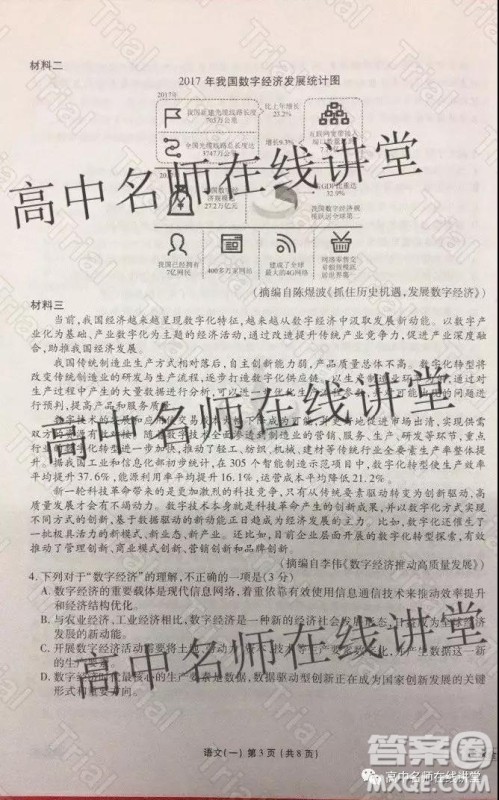 材料二
2017 年我国数字经济发展统计图
2017年
比上年增长
23.2%
全国光缆线路总长度达
3747万公里
增长9.3%
互联网宽带接入
27.2万亿元
GDP比重达
32.9%
我国数字经济规
模跃居全球第二
我国已经拥有
7亿网民
400多万家网站
建成了全球
最大的4G网络
网络零售交
易额规模跃
居世界第一
高中名师在线讲堂
(摘编自陈煜波《抓住历史机遇,发展数字经济》)
材料三
当前,我国经济越来越呈现数字化特征,越来越从数字经济中汲取发展新动能。以数字产
业化为基础、产业数字化为主题的经济活动,通过改造提升传统产业竞争力,促进产业深度融
合,助推我国经济发展。
我国传统制造业生产方式相对落后,自主创新能力弱,产品质量总体不高。数字化转型将
改变传统制造业的研发与生产流程,逐步打造数字化供应链
生产过程中产生的大量数据进行分析,可以进一步
行预判,提高产品和服务质量。
高中名师在线讲堂
数字技术的
促进市场出清,实现供需
双方
制造业的营销、服务、生产、研发等环节,重点
行业数字化转型进一步加快,推动了轻工、纺织、机械、建材等传统行业全要素生产率整体提
升。据我国工业和信息化部初步统计,在 305 个智能制造示范项目中,数字化转型使生产效率
平均提升 37.6%,能源利用率平均提升 16.1%,运营成本平均降低 21.2%。
新一轮科技革命带来的是更加激烈的科技竞争,只有从传统要素驱动转变为创新驱动,高
质量发展才会有不竭动力。数字技术本身就是科技革命产生的创新成果,并以数字化方式实现
不同方式的创新,基于数据驱动的新动能正日趋成为经济发展的主力。比如,数字化还催生了
一批极具活力的新模式、新业态、新产业。还比如,目前企业层面开展的数字化转型探索,有效
推动了管理创新、商业模式创新、营销创新和品牌创新。
(摘编自李伟《数字经济推动高质量发展》)
4. 下列对于“数字经济”的理解,不正确的一项是(3 分)
A. 数字经济的重要载体是现代信息网络,着重依靠有效使用信息通信技术来推动效率提升
和经济结构优化。
B. 与农业经济、工业经济相比,数字经济是一种新的经济社会发展形态,日益成为全球经济
发展的新动能。
C. 开展数字经济活动需要将土地、劳动力、资本、技术等生产要素数字化,并产生数据这一新
的生产要素。
D. 数字经济时代最核心的生产要素是数据,数据驱动型创新正在成为国家创新发展的关键
形式和重要方向。
高中名师在线讲堂
语文(一) 第 3 页(共 8 页)
答案卷
高中名师在线讲堂
Trial